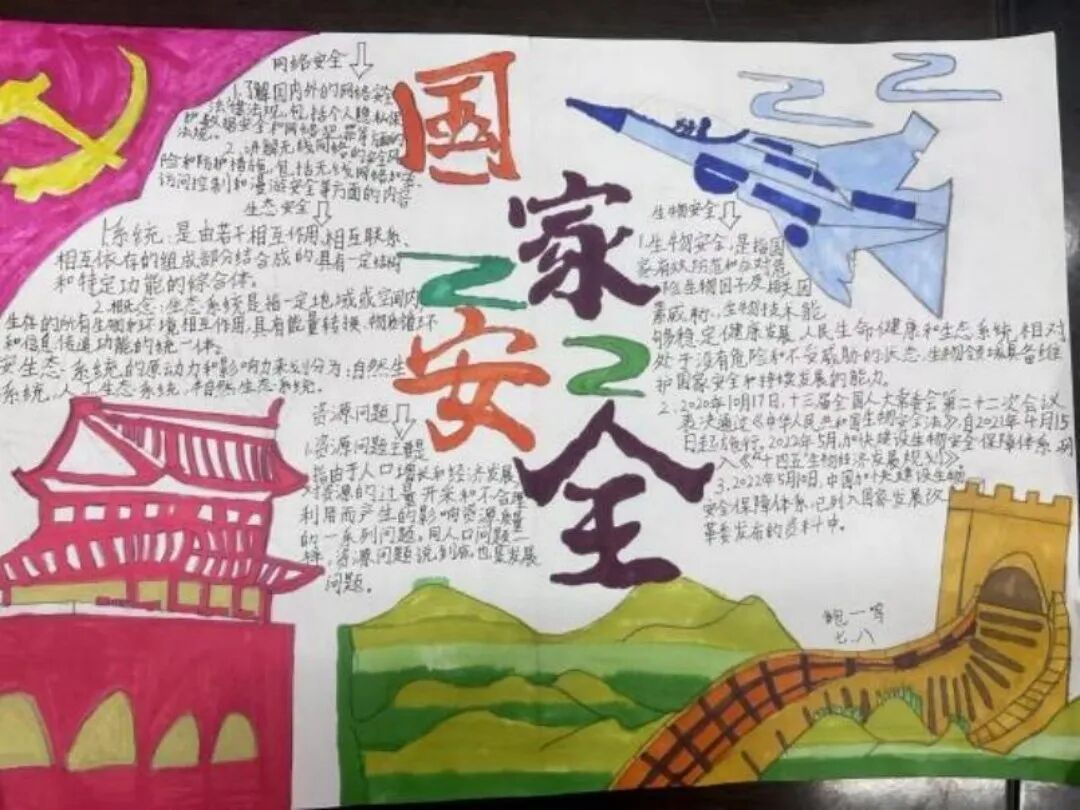 国家安全
网络安全
1.了解国内外的网络安全
法律法规,包括个人隐私保
护数据安全和网络犯罪等方面的
法规。
2.讲解无线网络的安全风
险和防护措施,包括无线网络加密
访问控制和漫游安全等方面的内容
生态安全
1系统:是由若干相互作用、相互联系、
相互依存的组成部分结合成的,具有一定结构
和特定功能的综合体。
2.概念:生态系统是指一定地域或空间内
生存的所有生物和环境相互作用,具有能量转换、物质循环
和信息传递功能的统一体。
安生态系统的原动力和影响力来划分为:自然生
系统,人工生态系统,半自然生态系统。
资源问题
1.资源问题主要是
指由于人口增长和经济发展
对资源的过量开采和不合理
利用而产生的影响资源质量
的一系列问题。同人口问题一
样,资源问题说到底也是发展
问题。
生物安全
1.生物安全,是指国
家有效防范和应对危
险生物因子及相关因
素威胁,生物技术能
够稳定健康发展,人民生命健康和生态系统相对
处于没有危险和不受威胁的状态,生物领域具备维
护国家安全和持续发展的能力。
2.2020年10月17日,十三届全国人大常委会第二十二次会议
表决通过《中华人民共和国生物安全法》自2021年4月15
日起施行。2022年5月,加快建设生物安全保障体系,列
入《"十四五"生物经济发展规划》
3.2022年5月10日,中国加快建设生物
安全保障体系,已列入国家发展改
革委发布的资料中。
鲍一鸣
七.八